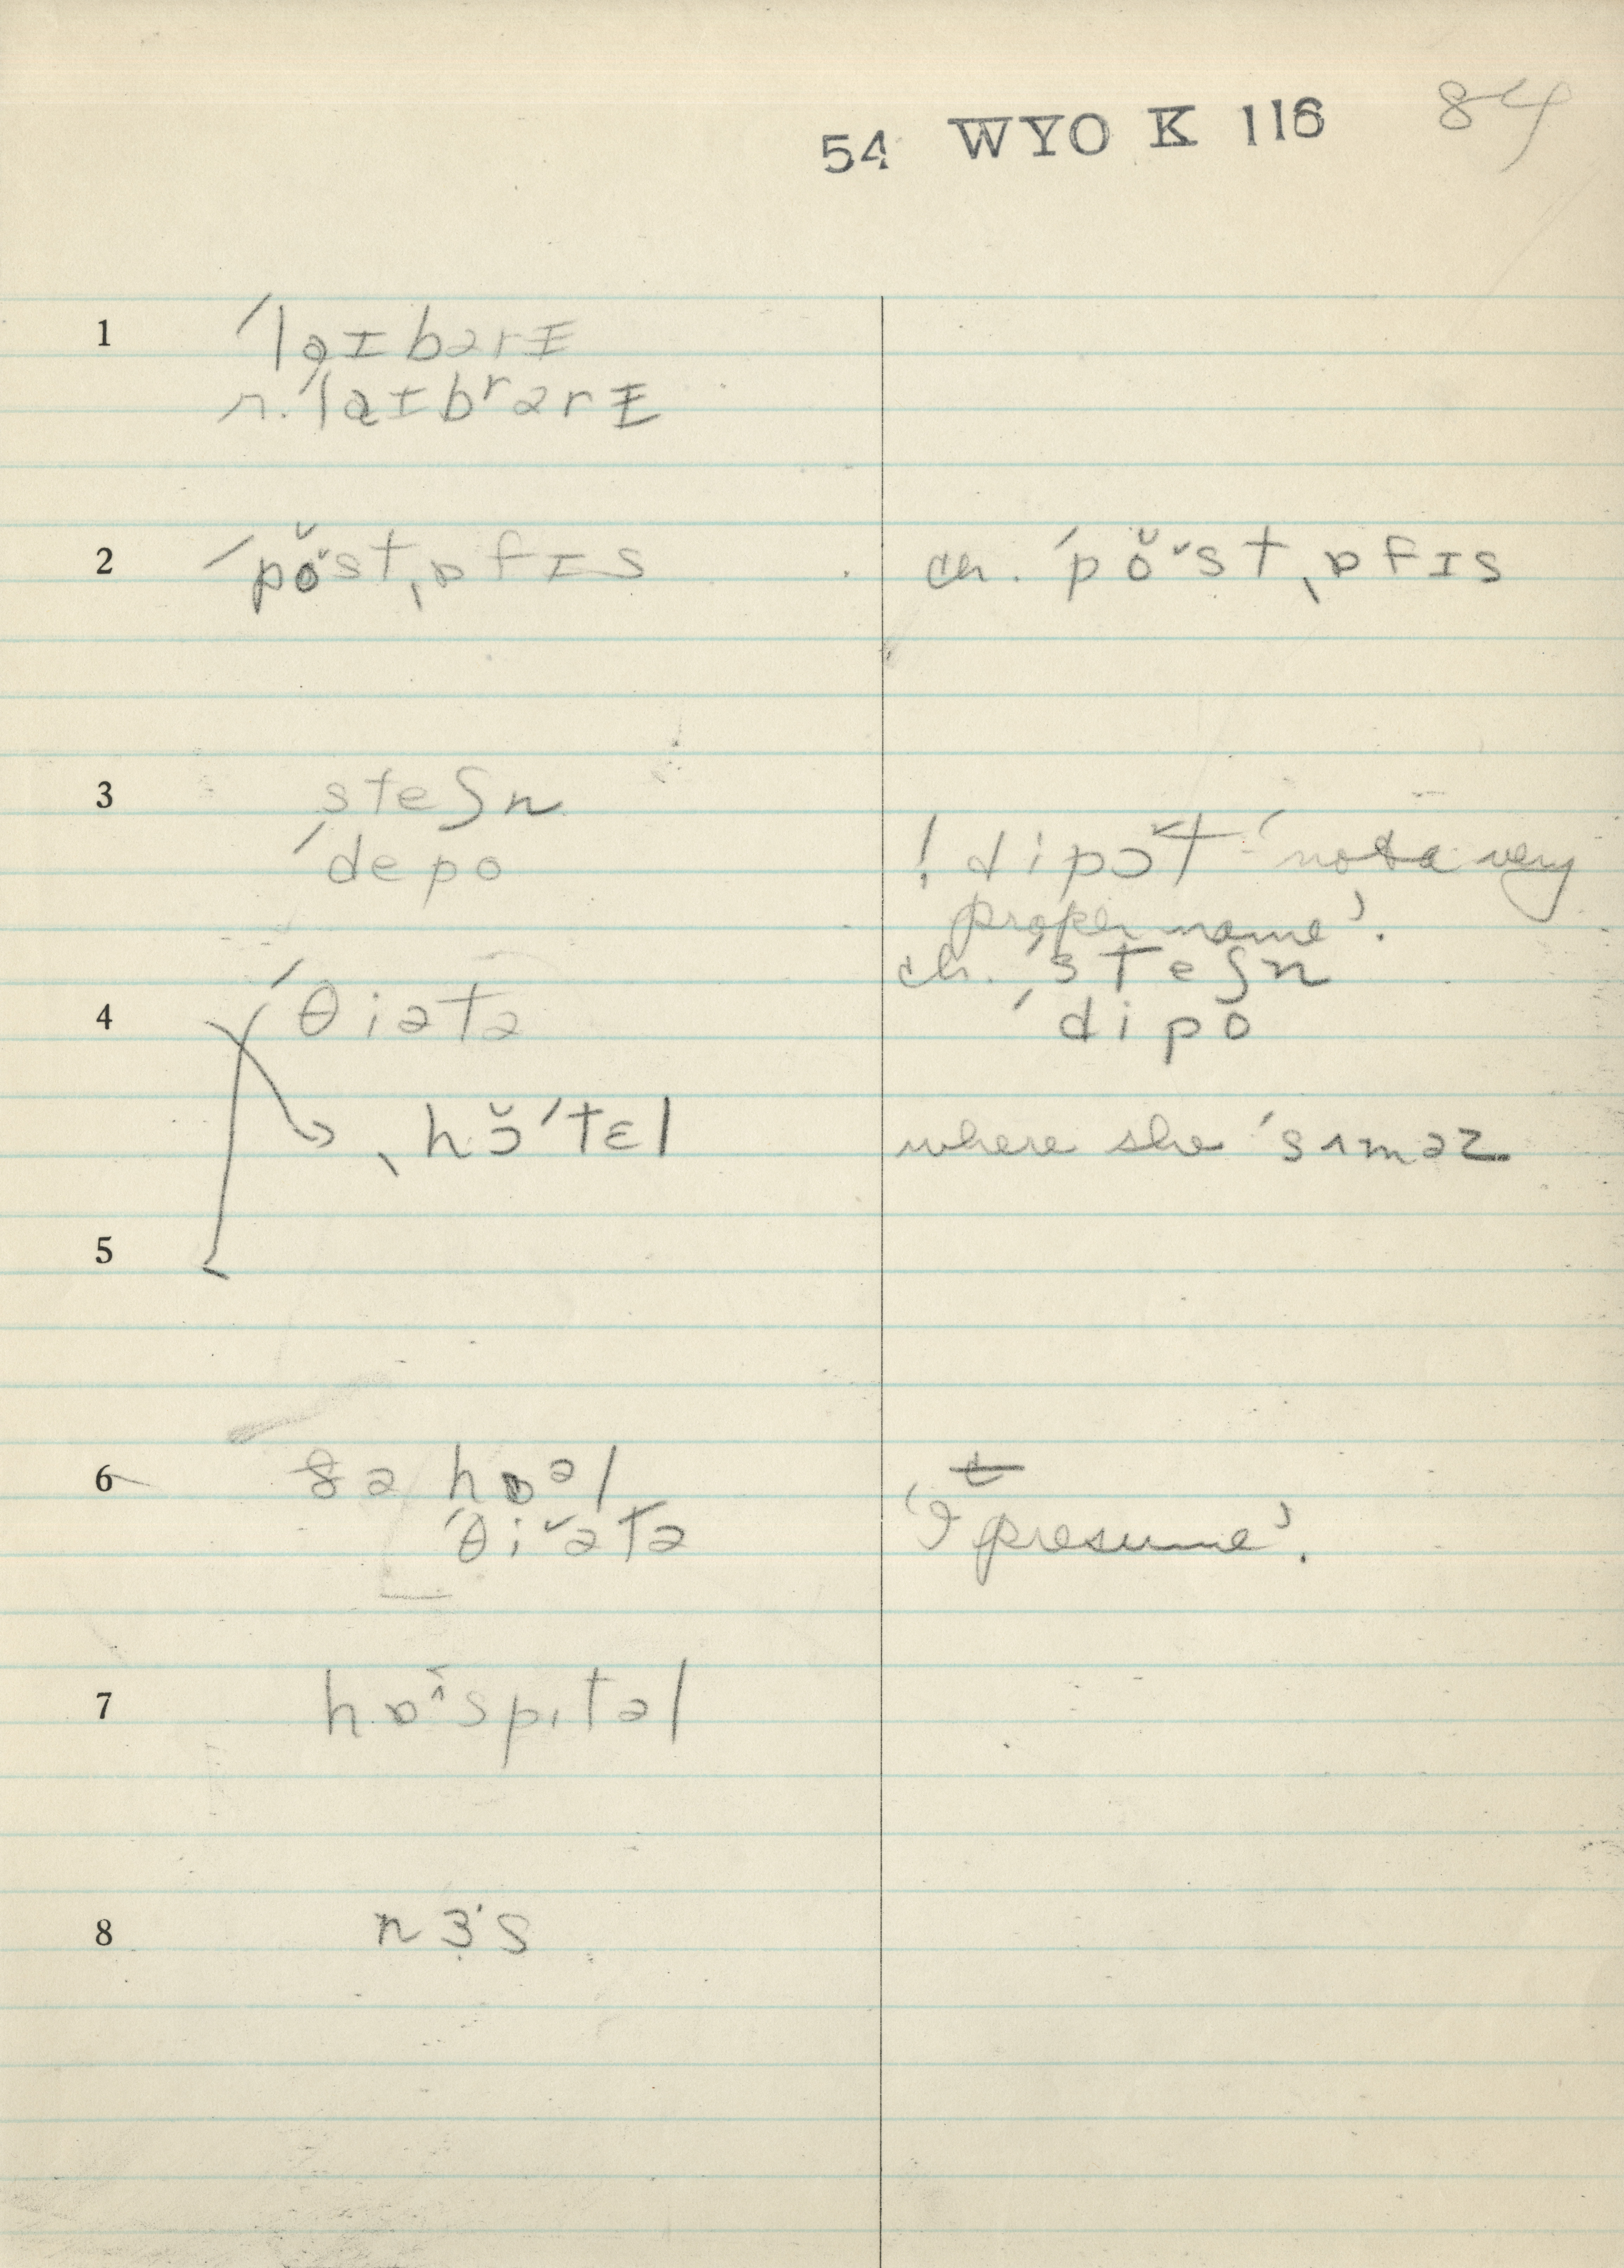 54 WYO K 116 84
1 ˈlaɪbərɪ
r. ˈlaɪbʳərɪ
2 ˈpŏ˅st ˌɒfɪs ch. ˈpŏ˅st ˌɒfɪs
3 steʃn
ˈdepo ! dipɔ˅t 'not a very
proper name'.
ch. ˈsteʃn
4 ˈθiətə ˈdipo
ˌhɔ̆ˈtɛl where she ˈsʌməz
5
6 ðə hɒᵊl
ˈθi˅ətə 'I presume'.
7 hɒ^spɪtəl
8 nɜ˙s